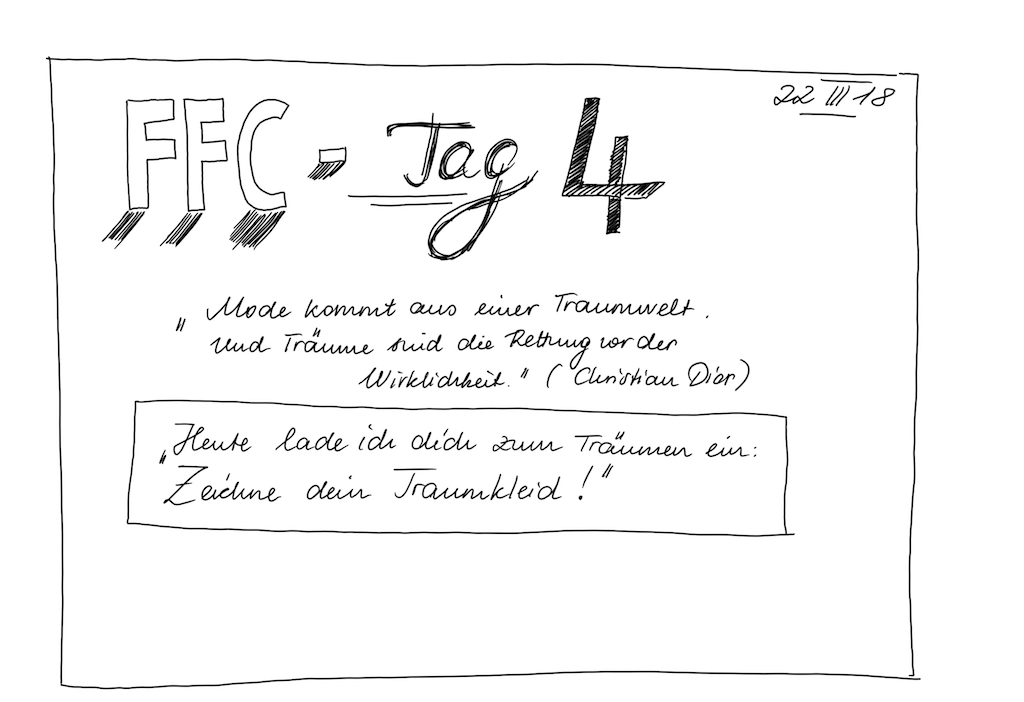 22 III 18
FFC - Tag 4
„Mode kommt aus einer Traumwelt.
Und Träume sind die Rettung vor der
Wirklichkeit." (Christian Dior)
„Heute lade ich dich zum Träumen ein:
Zeichne dein Traumkleid!"